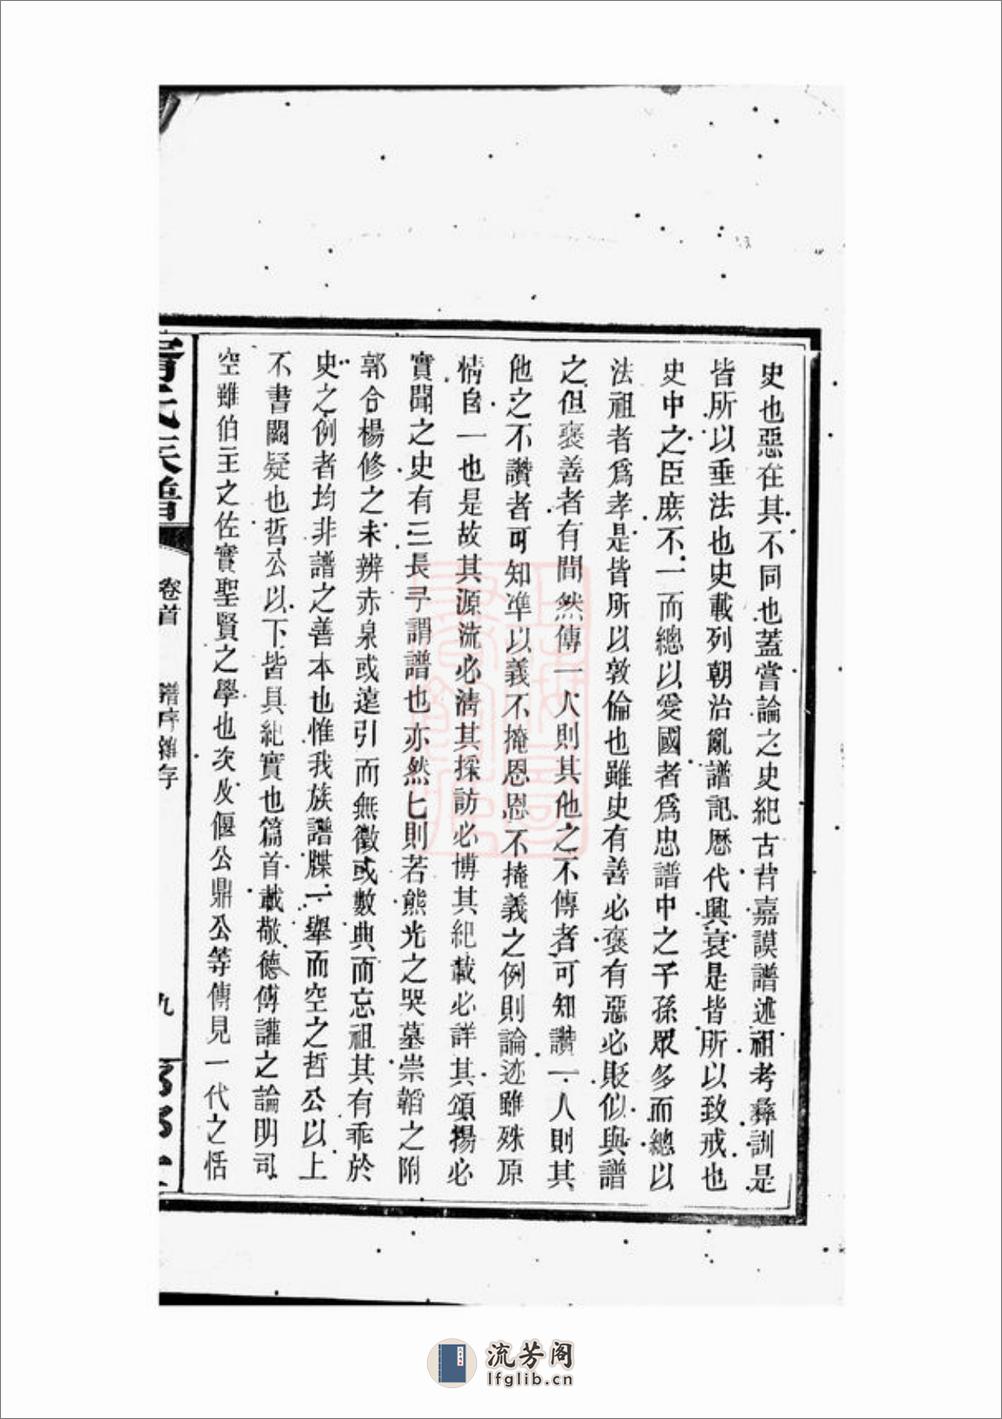 史也惡在其不同也蓋嘗論之史紀古昔嘉謨譜述祖考彝訓是
皆所以垂法也史載列朝治亂譜記歷代興衰是皆所以致戒也
史中之臣庶不一而總以愛國者爲忠譜中之子孫眾多而總以
法祖者爲孝是皆所以敦倫也雖史有善必褒有惡必貶似與譜
之但褒善者有間然傳一人則其他之不傳者可知讚一人則其
他之不讚者可知準以義不掩恩恩不掩義之例則論迹雖殊原
情自一也是故其源流必清其採訪必博其紀載必詳其頌揚必
實聞之史有三長予謂譜也亦然匕則若熊光之哭墓崇韜之附
郭合楊修之未辨赤泉或遠引而無徵或數典而忘祖其有乖於
史之例者均非譜之善本也惟我族譜牒一舉而空之哲公以上
不書闕疑也哲公以下皆具紀實也篇首載敬德傅讜之論明司
空雖伯王之佐實聖賢之學也次及偃公鼎公等傳見一代之恬
氏族譜
卷首
譜序雜存
九
流芳阁
lfglib.cn